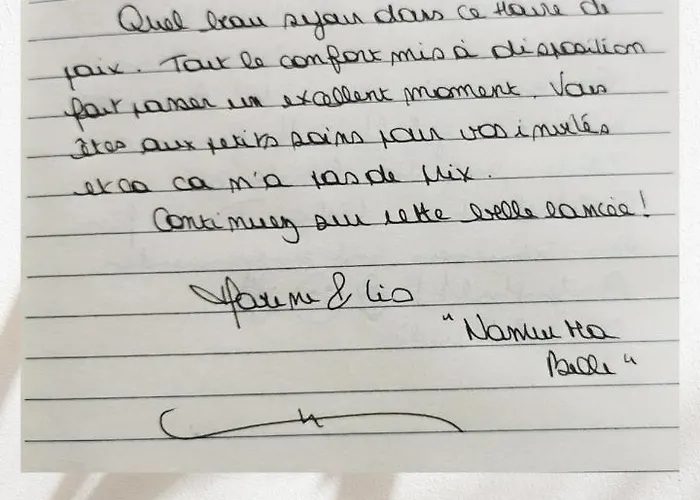 Quel beau séjour dans ce Havre de
paix. Tout le confort mis à disposition
fait passer un excellent moment. Vous
êtes aux petits soins pour vos invités
et ça ça n'a pas de prix.
Continuez sur cette belle lancée!
Marine & Lio
"Namur Ma
Belle"